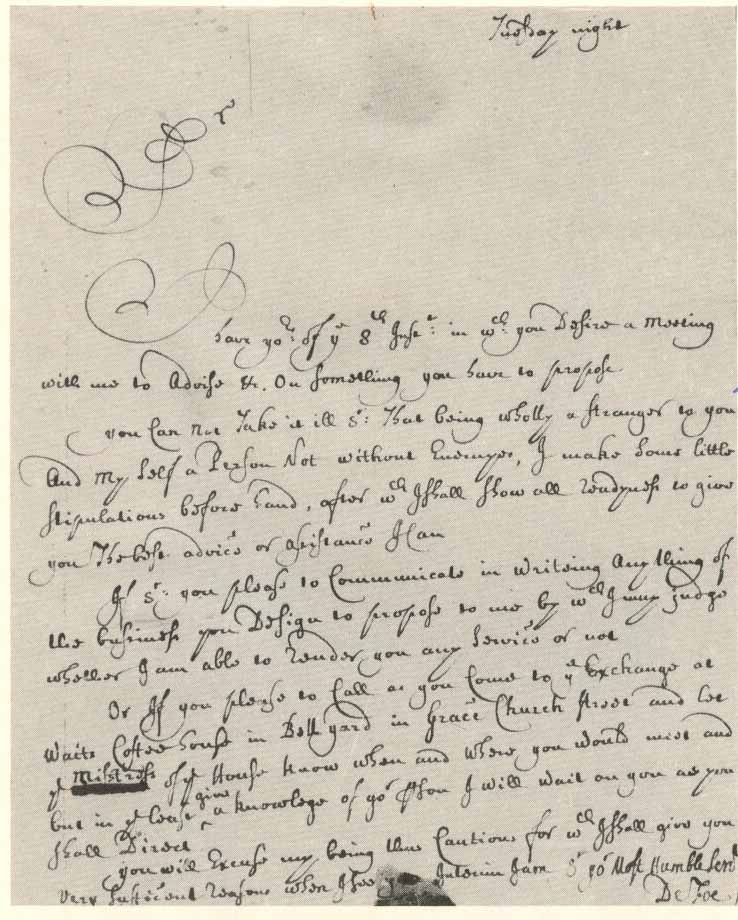 Tuesday night
Sr
I have yors of ye 8th Inst: in wch you Desire a meeting
with me to Advise &c. On something you have to propose
you Can Not Take it ill Sr: That being wholly a stranger to you
And my Self a Person Not without Enemyes, I make some little
stipulations before hand, after wch I shall show all readyness to give
you The best advice or assistance I Can
If Sr: you please to Communicate in Writeing Any thing of
the business you Design to propose to me by wch I may judge
whether I am able to Render you any Service or not
Or If you please to Call as you Come to ye Exchange at
Waits Coffee house in Bell yard in Grace Church street and let
ye Mistress of ye House know when and where you would meet and
but in ye least give a knowlege of yor Pson I will wait on you as you
shall Direct
you will Excuse my being thus Cautious for wch I shall give you
very sufficent Reasons when I see Interim I am Sr yor Most Humble Servt
De Foe